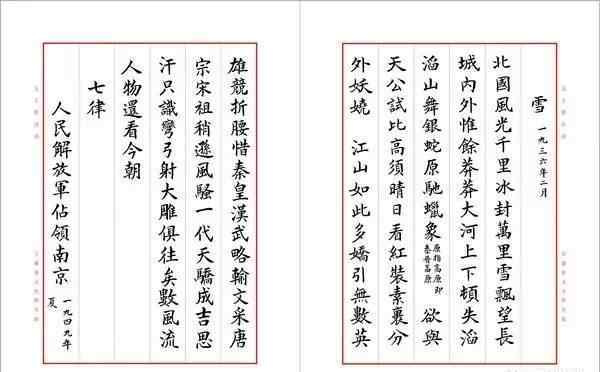 雪 一九三六年二月
北國風光千里冰封萬里雪飄望長
城內外惟餘莽莽大河上下頓失滔
滔山舞銀蛇原馳蠟象 原指高原即
秦晉高原
欲與
天公試比高須晴日看紅裝素裹分
外妖嬈 江山如此多嬌引無數英
雄競折腰惜秦皇漢武略輸文采唐
宗宋祖稍遜風騷一代天驕成吉思
汗只識彎弓射大雕俱往矣數風流
人物還看今朝
七律
人民解放軍佔領南京 一九四九年
夏